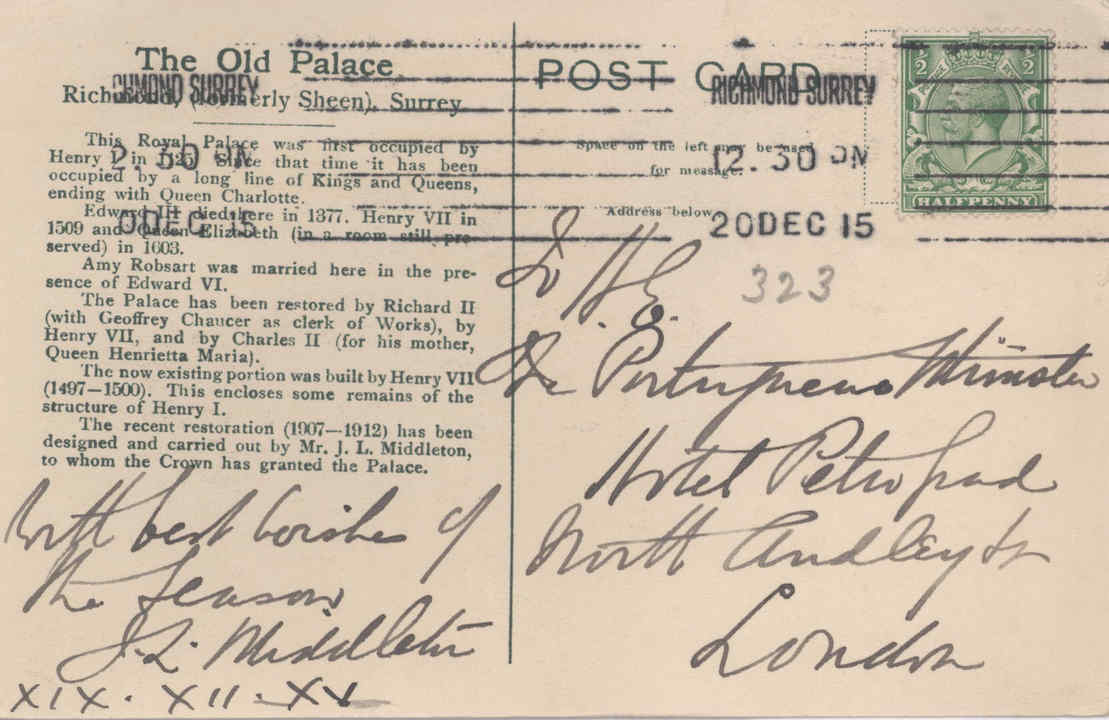 The Old Palace,
Richmond, (formerly Sheen), Surrey.
This Royal Palace was first occupied by
Henry I in 1125. Since that time it has been
occupied by a long line of Kings and Queens,
ending with Queen Charlotte.
Edward III died here in 1377. Henry VII in
1509 and Queen Elizabeth (in a room still pre-
served) in 1603.
Amy Robsart was married here in the pre-
sence of Edward VI.
The Palace has been restored by Richard II
(with Geoffrey Chaucer as clerk of Works), by
Henry VII, and by Charles II (for his mother,
Queen Henrietta Maria).
The now existing portion was built by Henry VII
(1497—1500). This encloses some remains of the
structure of Henry I.
The recent restoration (1907—1912) has been
designed and carried out by Mr. J. L. Middleton,
to whom the Crown has granted the Palace.
With best wishes of
the Season
J. L. Middleton
XIX. XII. XV
RICHMOND SURREY
2.30 PM
DEC 15
POST CARD
Space on the left may be used
for message.
Address below.
RICHMOND SURREY
12.30 PM
20 DEC 15
½ ½
HALFPENNY
323
To H.E.
The Portuguese Minister
Hotel Petrograd
North Audley St
London